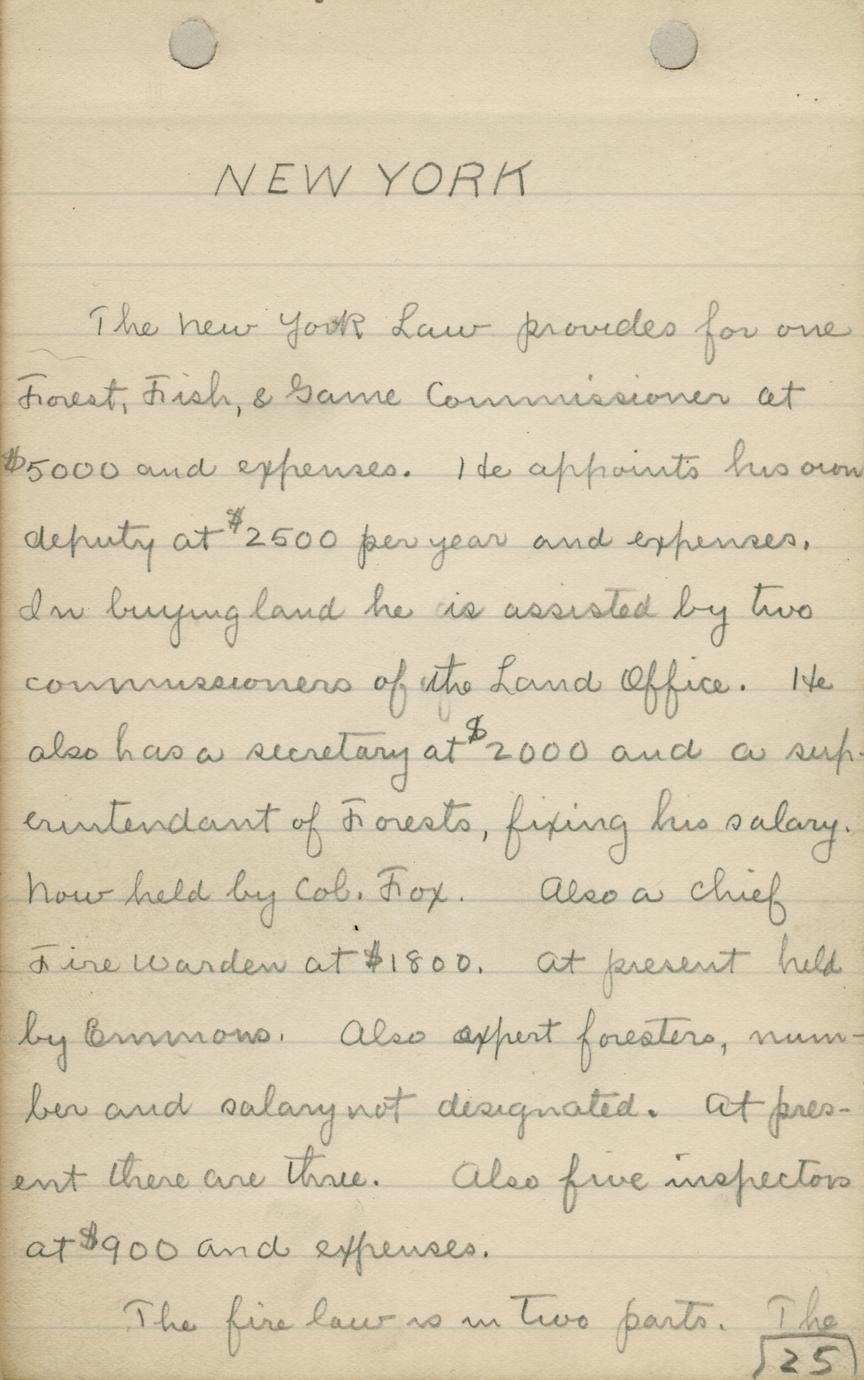 NEW YORK
The New York Law provides for one
Forest, Fish, & Game Commissioner at
$5000 and expenses. He appoints his own
deputy at $2500 per year and expenses.
In buying land he is assisted by two
commissioners of the Land Office. He
also has a secretary at $2000 and a sup-
erintendant of Forests, fixing his salary.
Now held by Col. Fox. Also a Chief
Fire Warden at $1800. At present held
by Emmons. Also expert foresters, num-
ber and salary not designated. At pres-
ent there are three. Also five inspectors
at $900 and expenses.
The fire law is in two parts. The
25